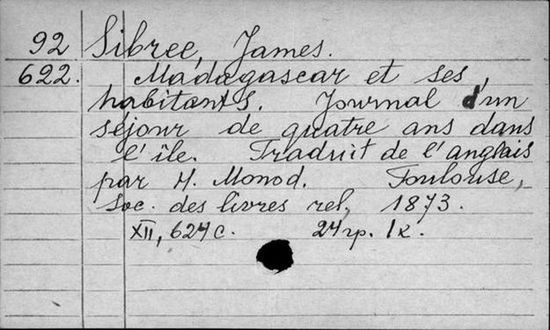 92 Sibree, James.
622. Madagascar et ses
habitants. Journal d'un
séjour de quatre ans dans
l'île. Traduit de l'anglais
par H. Monod. Toulouse,
Soc. des livres rel, 1873.
XII, 624 c. 24 гр. 1 к.